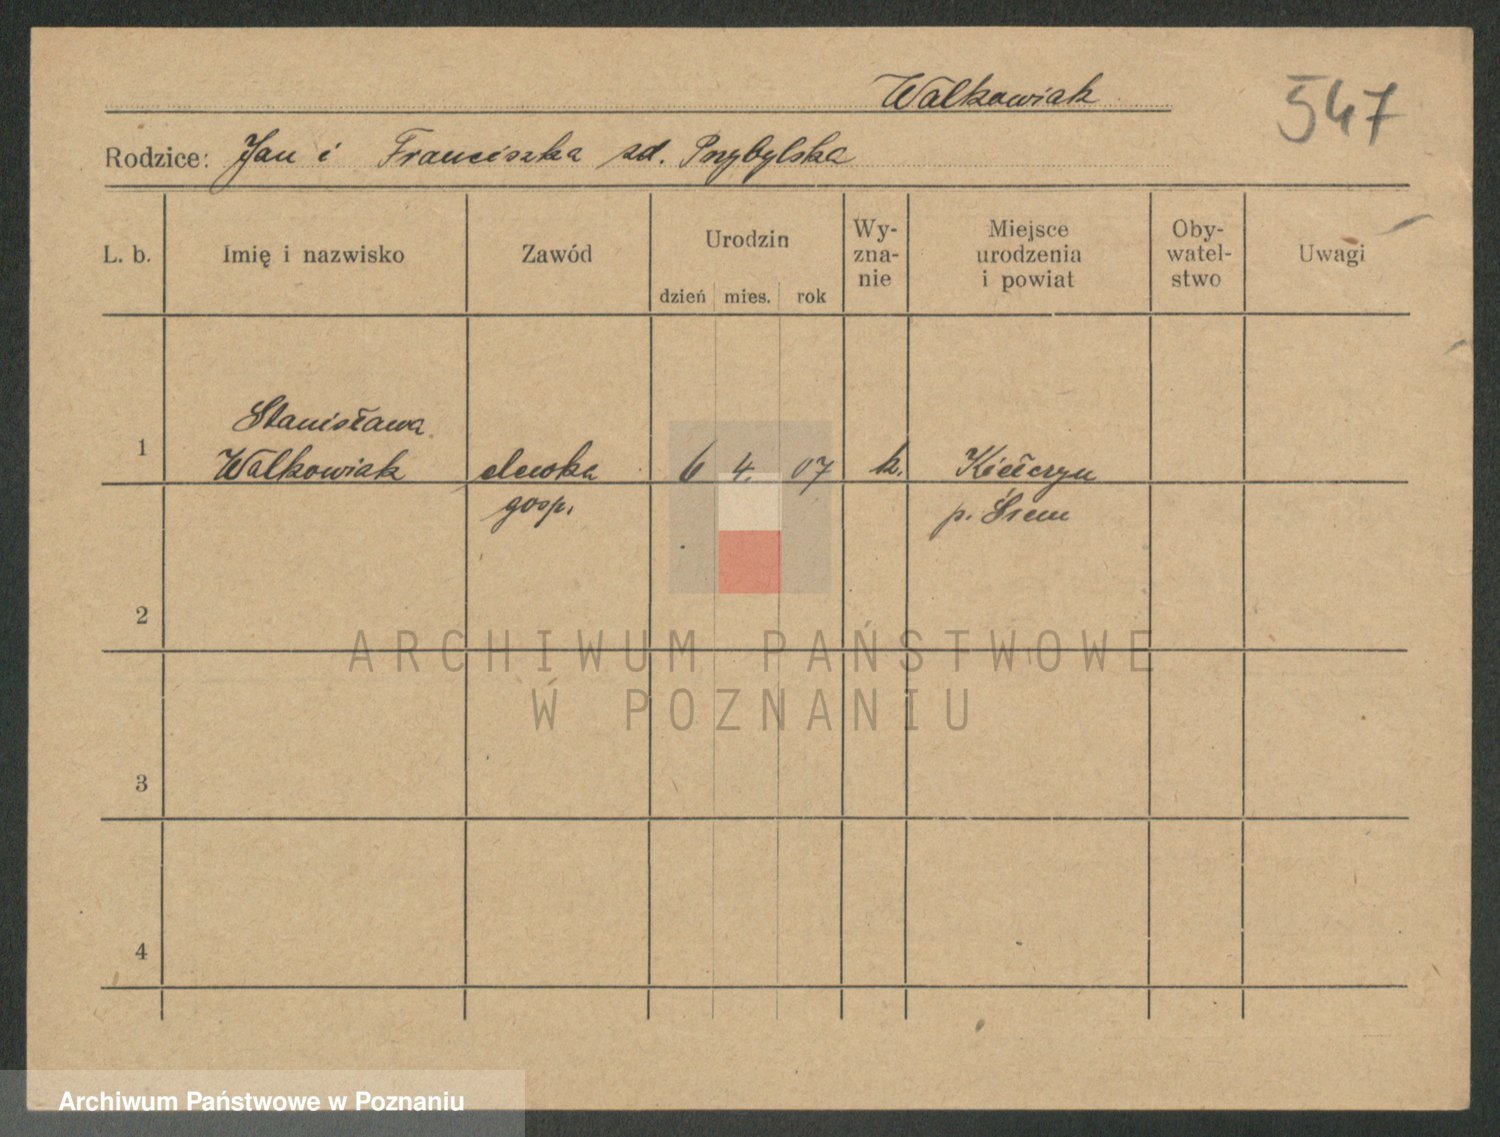 Walkowiak
547
Rodzice: Jan i Franciszka zd. Przybylska
L. b.
Imię i nazwisko
Zawód
Urodzin
dzień mies. rok
Wy-
zna-
nie
Miejsce
urodzenia
i powiat
Oby-
watel-
stwo
Uwagi
1
Stanisława
Walkowiak
gosp.
6 4. 07
k.
Kiełczyn
p. Śrem
2
3
4
ARCHIWUM PAŃSTWOWE
W POZNANIU
Archiwum Państwowe w Poznaniu